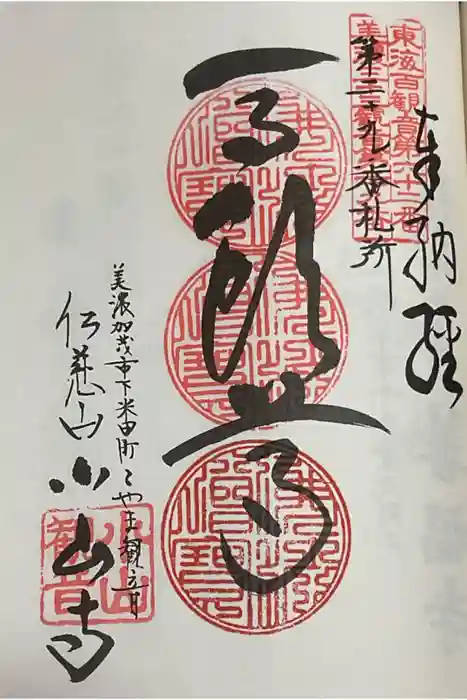 奉納経
東海百観音第六十二番
第二十九番札所
馬頭尊
美濃加茂市下米田町こやま観音
仁慈山小山寺
小山観音